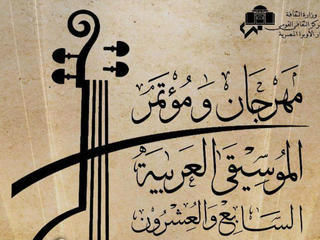 وزارة الثقافة
المركز الثقافي القومي
دار الأوبرا المصرية
مهرجان ومؤتمر
الموسيقى العربية
السابع والعشرون